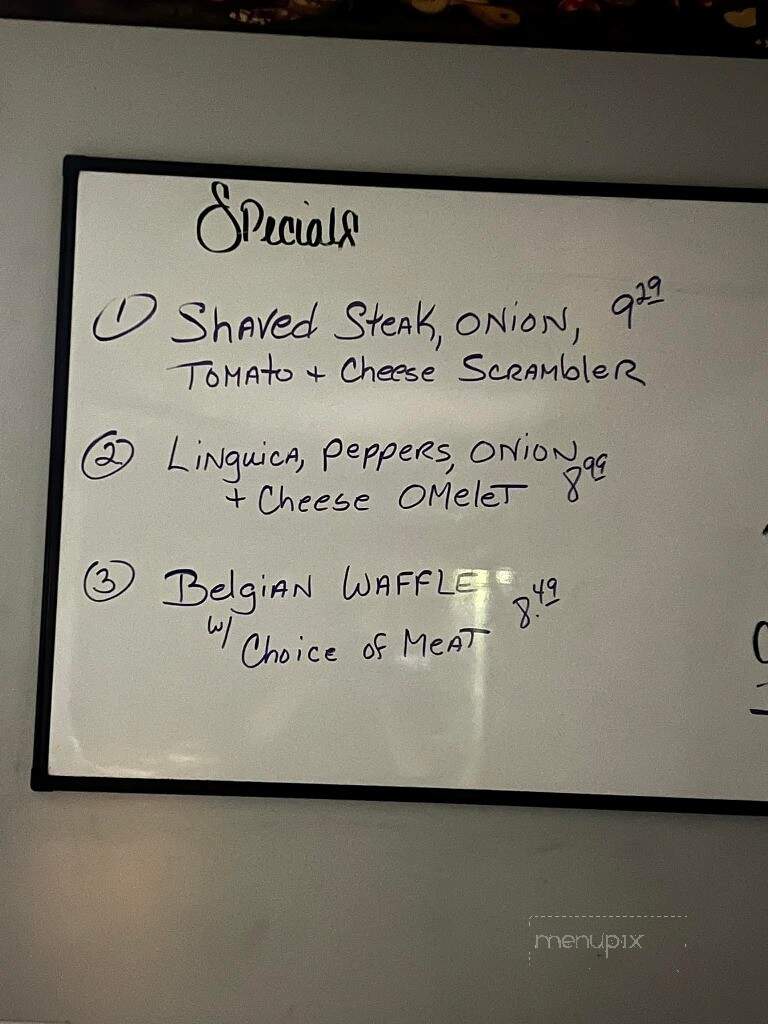 Specials
① Shaved Steak, Onion, 9 29
Tomato + Cheese Scrambler
② Linguica, Peppers, Onion
+ Cheese Omelet 8 99
③ Belgian Waffle 8.49
w/ Choice of Meat
menupix